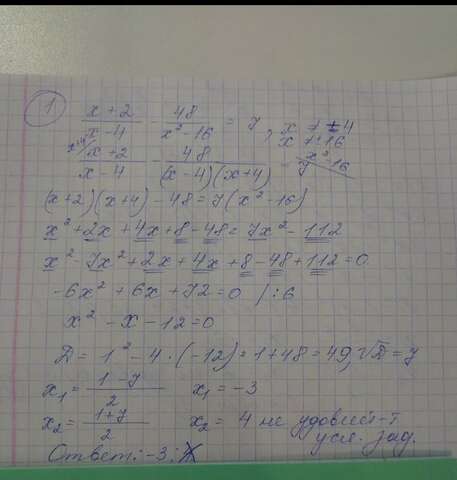 1) (x+2)/(x-4) - 48/(x²-16) = 7, x ≠ ±4
x ≠ 16
x+4/ (x+2)/(x-4) - 48/((x-4)(x+4)) = 7 x²-16
(x+2)(x+4) - 48 = 7(x²-16)
x² + 2x + 4x + 8 - 48 = 7x² - 112
x² - 7x² + 2x + 4x + 8 - 48 + 112 = 0
-6x² + 6x + 72 = 0 /:6
x² - x - 12 = 0
D = 1² - 4 · (-12) = 1 + 48 = 49, √D = 7
x₁ = (1-7)/2 x₁ = -3
x₂ = (1+7)/2 x₂ = 4 не удовлет-т
усл. зад.
Ответ: -3;